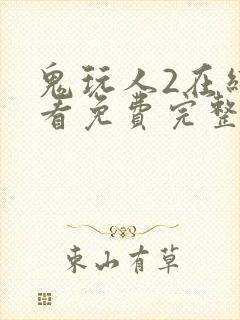 鬼玩人2在
看免費完整
東山有草